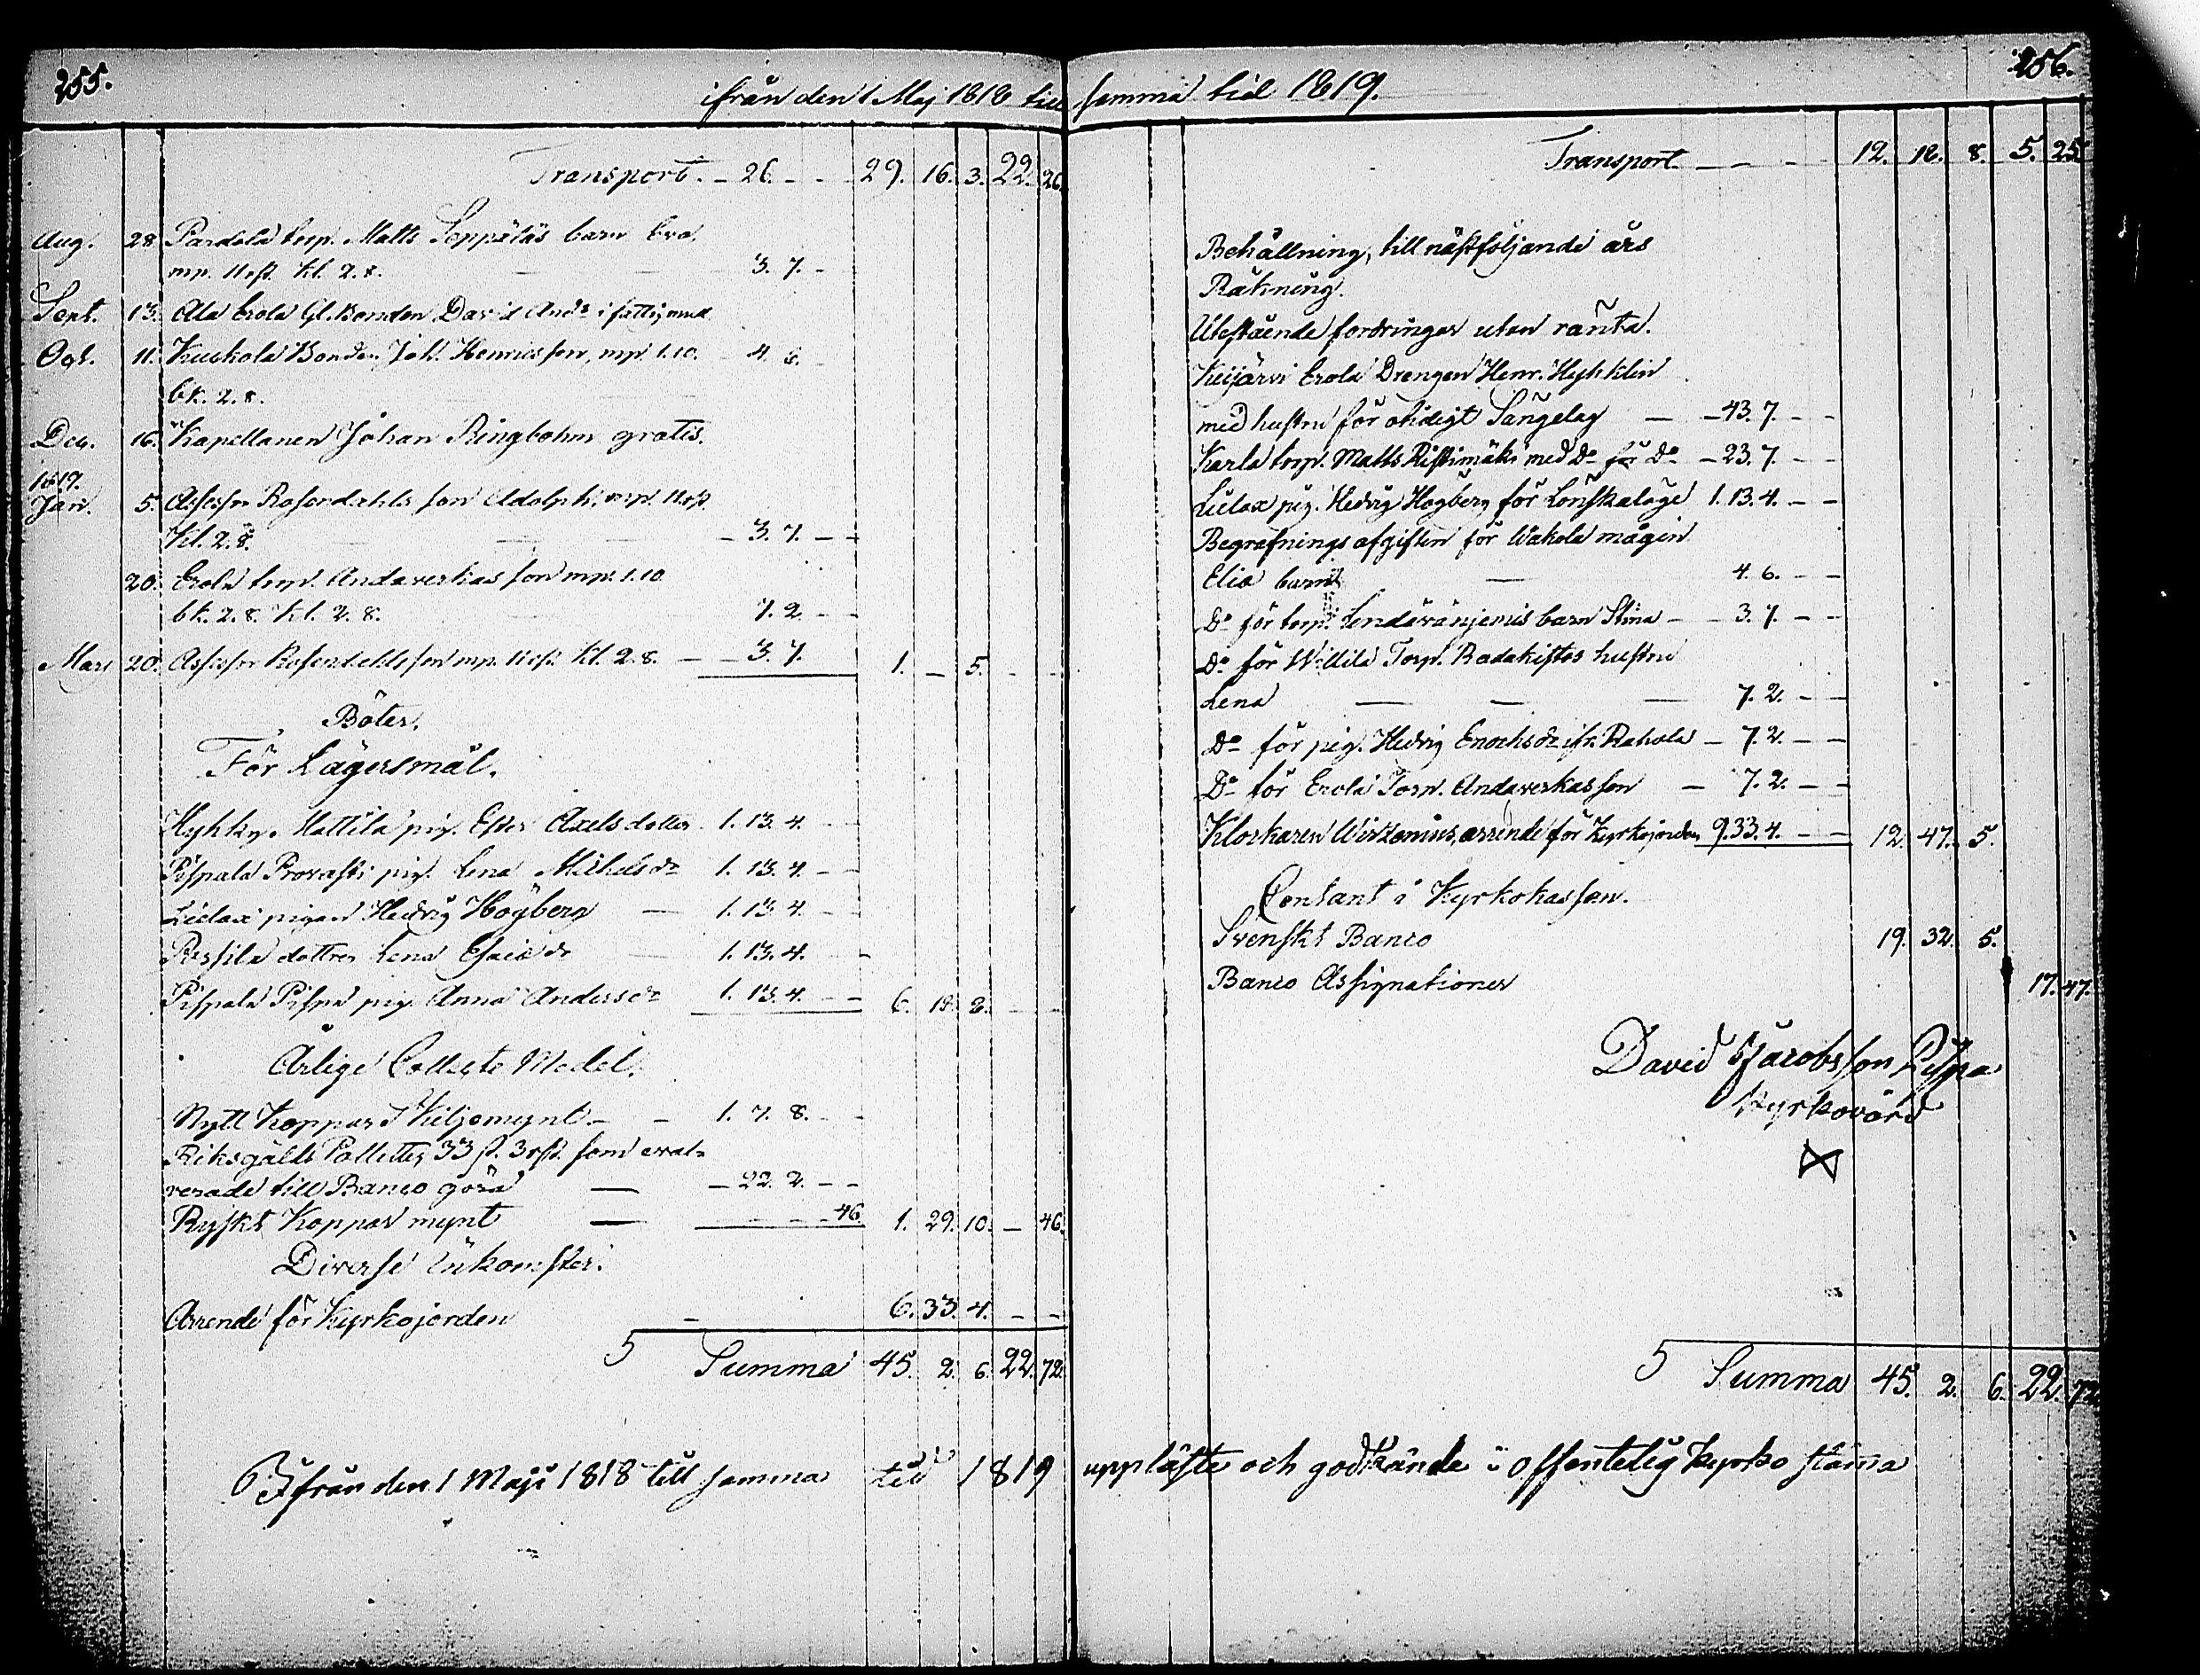 255.
ifrån den 1 Maj 1818 till samma tid 1819.
256.
Transport. - 26. - - 29. 16. 3. 22. 26.
Aug. 28 Pardola torp. Matts Seppäläs barn Eva,
mp. 11 rß. kl. 2. 8. 3. 7. -
Sept. 13. Ala Erola Gl. Bonden David And: i fattigmod
Oct. 11. Kuckola Bonden Joh. Henricsson, mp. 1. 10. 4. 6. -
bk. 2. 8.
Dec. 16. Kapellanen Johan Ringbohm gratis.
1819.
Jan. 5. Assessor Rosendahls son Adolph. mp. 11 rß.
Kl. 2. 8. - 3. 7. - -
20. Erola torp. Andaverkas son mp. 1. 10
bk. 2. 8. Kl. 2. 8. 7. 2. - -
Mars 20. Assessor Rosendahls son mp. 11 rß. Kl. 2. 8. - - 3. 7. 1. - 5. - -
Böter.
För Lägersmål.
Hyhky. Mattila pig. Ester Axelsdotter 1. 13. 4. - -
Pispala Provasti pig. Lena Michelsdr 1. 13. 4. - -
Lielax pigan Hedvig Högberg - 1. 13. 4. - -
dottren Lena Esaiædr 1. 13. 4. -
Pispala Pispa pig. Anna Andersdr 1. 13. 4. - - 6. 18. 8. - -
Årlige Collecte Medel.
Nytt Koppar Skiljemynt - - 1. 7. 8. - -
Riksgälds Polletter 33 ß. 3 rß. som eval-
verade till Banco göra - - 22. 2. - -
Ryskt Koppar mynt - - - - 46 1. 29. 10. - 46.
Diverse inkomster.
Arrende för Kyrkojorden - 6. 33. 4. - -
5 Summa 45. 2. 6. 22. 72.
Transport - - - 12. 18. 8. 5. 25.
Behållning, till nästföljande års
Räkning.
Utestående fordringar utan ränta.
Keijärvi Erola Drengen Henr. Hyhklin
med hustru för otidigt Sängelag - - 43. 7. - -
Karla torp. Matts Ristimäki med Do för Do - 23. 7. - -
Lielax pig. Hedvig Högberg för Lönskaläge 1. 13. 4. - -
Begrafnings afgiften för Wakola mågen
Elia barn - 4. 6. - -
Do för torp. barn Stina - - 3. 7. - -
Do för Willila Torp. hustru
Lena - - - 7. 2. - -
Do för pig. Hedvig Enochsdr ifr. Rahola - 7. 2. - -
Do för Erola Torp. Andaverkas son - 7. 2. - -
Klockaren Wirzenius, arrende för Kyrkojorden 9. 33. 4. - - 12. 47. 5.
Contant i Kyrkokassan.
Svenskt Banco 19. 32. 5.
Banco Assignationer 17. 47.
David Jacobsson Pispa
Kyrkovärd
5 Summa 45. 2. 6. 22. 72
Ifrån den 1 Maji 1818 till samma tid 1819 uppläste och godkände i offentelig kyrko stäma